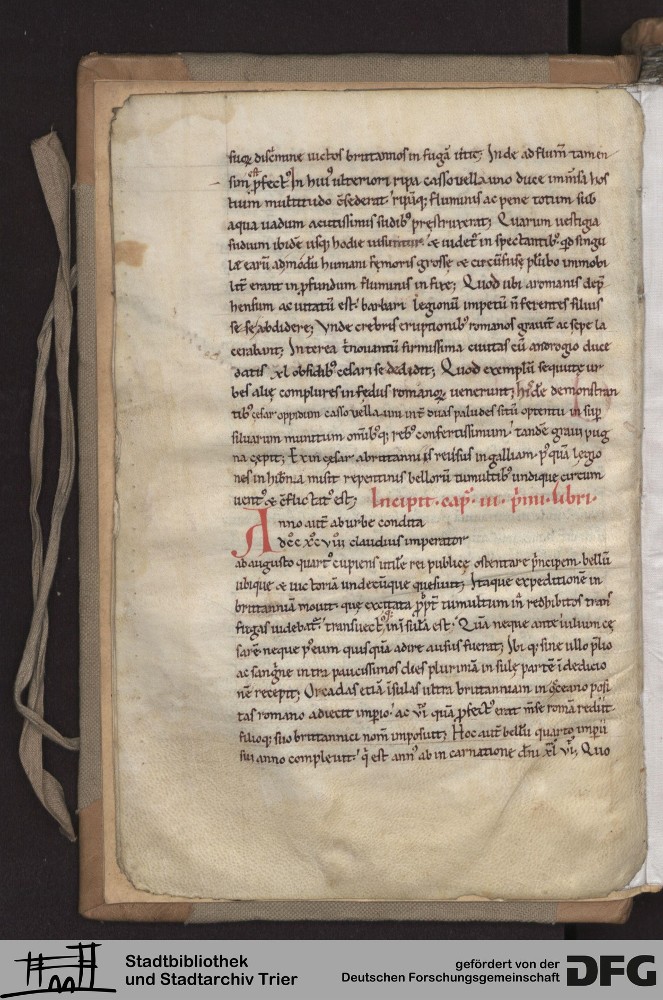 suoq; discrimine uictos brittannos in fugā uertit; Inde ad flumē tamen
sim pfect᷒ est In hui᷒ ulteriori ripa cassouellauno duce immsa hos
tium multitudo cōsederat. ripāq; fluminis ac pene totum sub
aqua uadum acutissimis sudib᷒ pręstruxerat; Quarum uestigia
sudium ibidē usq; hodie uisuntur. & uidet᷑ in spectantib᷒ qd singu
lę earū admodū humani femoris grossę & circūfusę plūbo immobi
lit᷑ erant in pfundum fluminis in fixę; Quod ubi aromanis dep̄
hensum ac uitatū est. barbari legionū impetū n̄ ferentes siluis
sese abdidere; Vnde crebris eruptionib᷒ romanos grauit᷑ ac sepe la
cerabant; Interea t᷑nouantū firmissima ciuitas cū androgio duce
datis xl obsidib᷒ cesari se dedidit; Quod exemplū secutę ur
bes alię complures in fędus romanoꝝ uenerunt; hisdē demonstran
tib᷒ cęsar oppidum cassouellauni int᷑ duas paludes sitū optentu insup
siluarum munitum omīb᷒q; reb᷒ confertissimum. tandē graui pug
na cępit; Exin cęsar abrittannis reuersus in galliam. p᷒quā legio
nes in hib᷑na misit repentinis bellorū tumultib᷒ undique circum
uent᷒ & cōflictat᷒ est; Incipit. cap. iii. primi. libri.
Anno autē ab urbe condita
dcc xc viii claudius imperator
ab augusto quart᷒ cupiens utilē rei publicę ostentare principem. bellū
ubique & uictoriā undecūque quesiuit; Itaque expeditionē in
brittanniā mouit. quę excitata ppt᷑ tumultum in n̄ redhibitos trans
fugas uidebat᷑. transuect᷒ in īsula est. Quā neque ante iulium cę
sarē neque p᷒ eum quisquā adire ausus fuerat; Ibi q; sine ullo plio
ac sanguine intra paucissimos dies plurimā insulę partē ī dedicio
nē recepit; Orcadas etiā īsulas ultra brittanniam in oceano posi
tas romano adiecit impio. ac vi quā pfect᷒ erat m̄se romā rediit.
filioq; suo brittannici nom̄ imposuit; Hoc autē bellū quarto imperii
sui anno compleuit. q̄ est ann᷒ ab incarnatione dn̄i xl vi; Quo
Stadtbibliothek
und Stadtarchiv Trier
gefördert von der
Deutschen Forschungsgemeinschaft
DFG